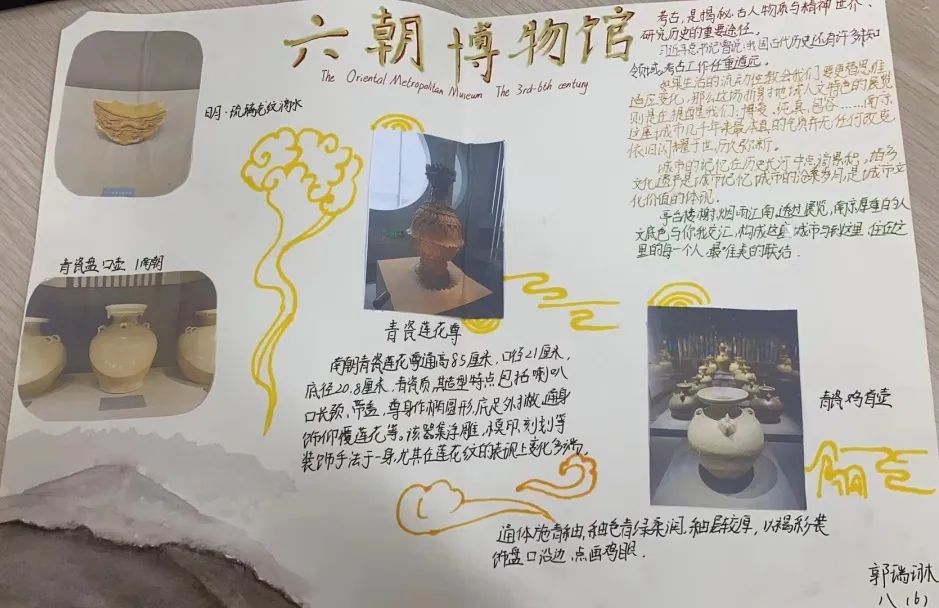 六朝博物馆
The Oriental Metropolitan Museum The 3rd-6th century
考古,是揭秘古人物质与精神世界、
研究历史的重要途径。
习近平总书记曾说:我国古代历史还有许多未知
领域,考古工作任重道远。
如果生活的流动性教会我们要更替思维
适应变化,那么这场浙身地域人文特色的展览
则是在提醒我们:博爱、纯真、包容……南京
这座城市几千年来最本真的气质并无任何改変
依旧闪耀于世,历久弥新。
城市的记忆在历史长河中点滴累积,
文化遗产是城市记忆,城市的沧桑岁月,是城市文
化价值的体现。
亭台楼榭,烟雨江南,透过展览,南京厚重的人
文底色与你我交汇,构成这座城市与到这里、住在这
里的每一个人最准美的联结.
明·琉璃龙纹滴水
青瓷盘口壶 / 南朝
青瓷莲花尊
南朝青瓷莲花尊通高85厘米,口径21厘米,
底径20.8厘米,青瓷质,其造型特点包括喇叭
口长颈,带盖,尊身作椭圆形,底足外撇,通身
饰仰覆莲花等。该器集浮雕,模印,刻划等
装饰手法于一身,尤其在莲花纹的装饰上变化多端
青瓷鸡首壶
通体施青釉,釉色青绿柔润,釉层较厚,以褐彩装
饰盘口沿边,点画鸡眼.
郭瑞琳
八(6)